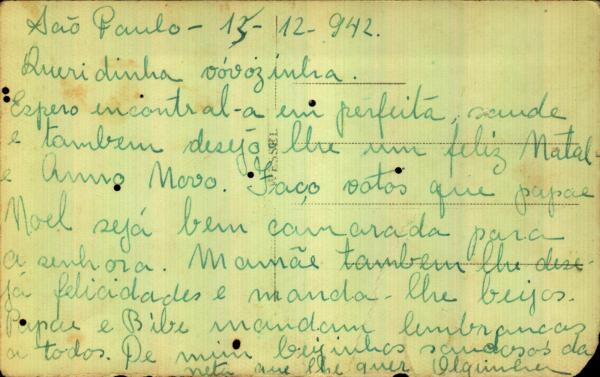 São Paulo - 15-12-942.
Queridinha vóvozinha.
Espero encontral-a em perfeita, saude
e tambem desejo lhe um feliz Natal
e Anno Novo. Faço votos que papae
Noel sejá bem camarada para
a senhora. Mamãe tambem lhe dese-
já felicidades e manda-lhe beijos.
Papae e Bibe mandam lembranças
a todos. De mim beijinhos saudosos da
neta que lhe quer